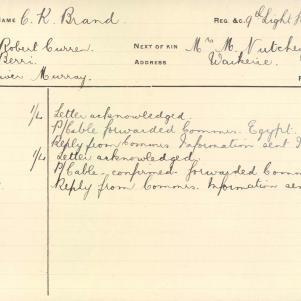 NAME C. K. Brand REG &C. 9th Light H
Robert Curren NEXT OF KIN Mrs M. Nutche
Berri. ADDRESS Waikerie.
iver Murray.
1/4 Letter acknowledged.
P/Cable forwarded Commrs. Egypt.
Reply from Commrs Information sent
1/4 Letter acknowledged.
P/Cable confirmed forwarded Comm
Reply from Commrs. Information sen